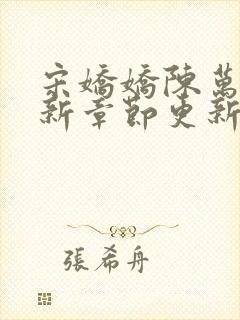 宋嬌嬌陳萬
新章節更新
張希舟